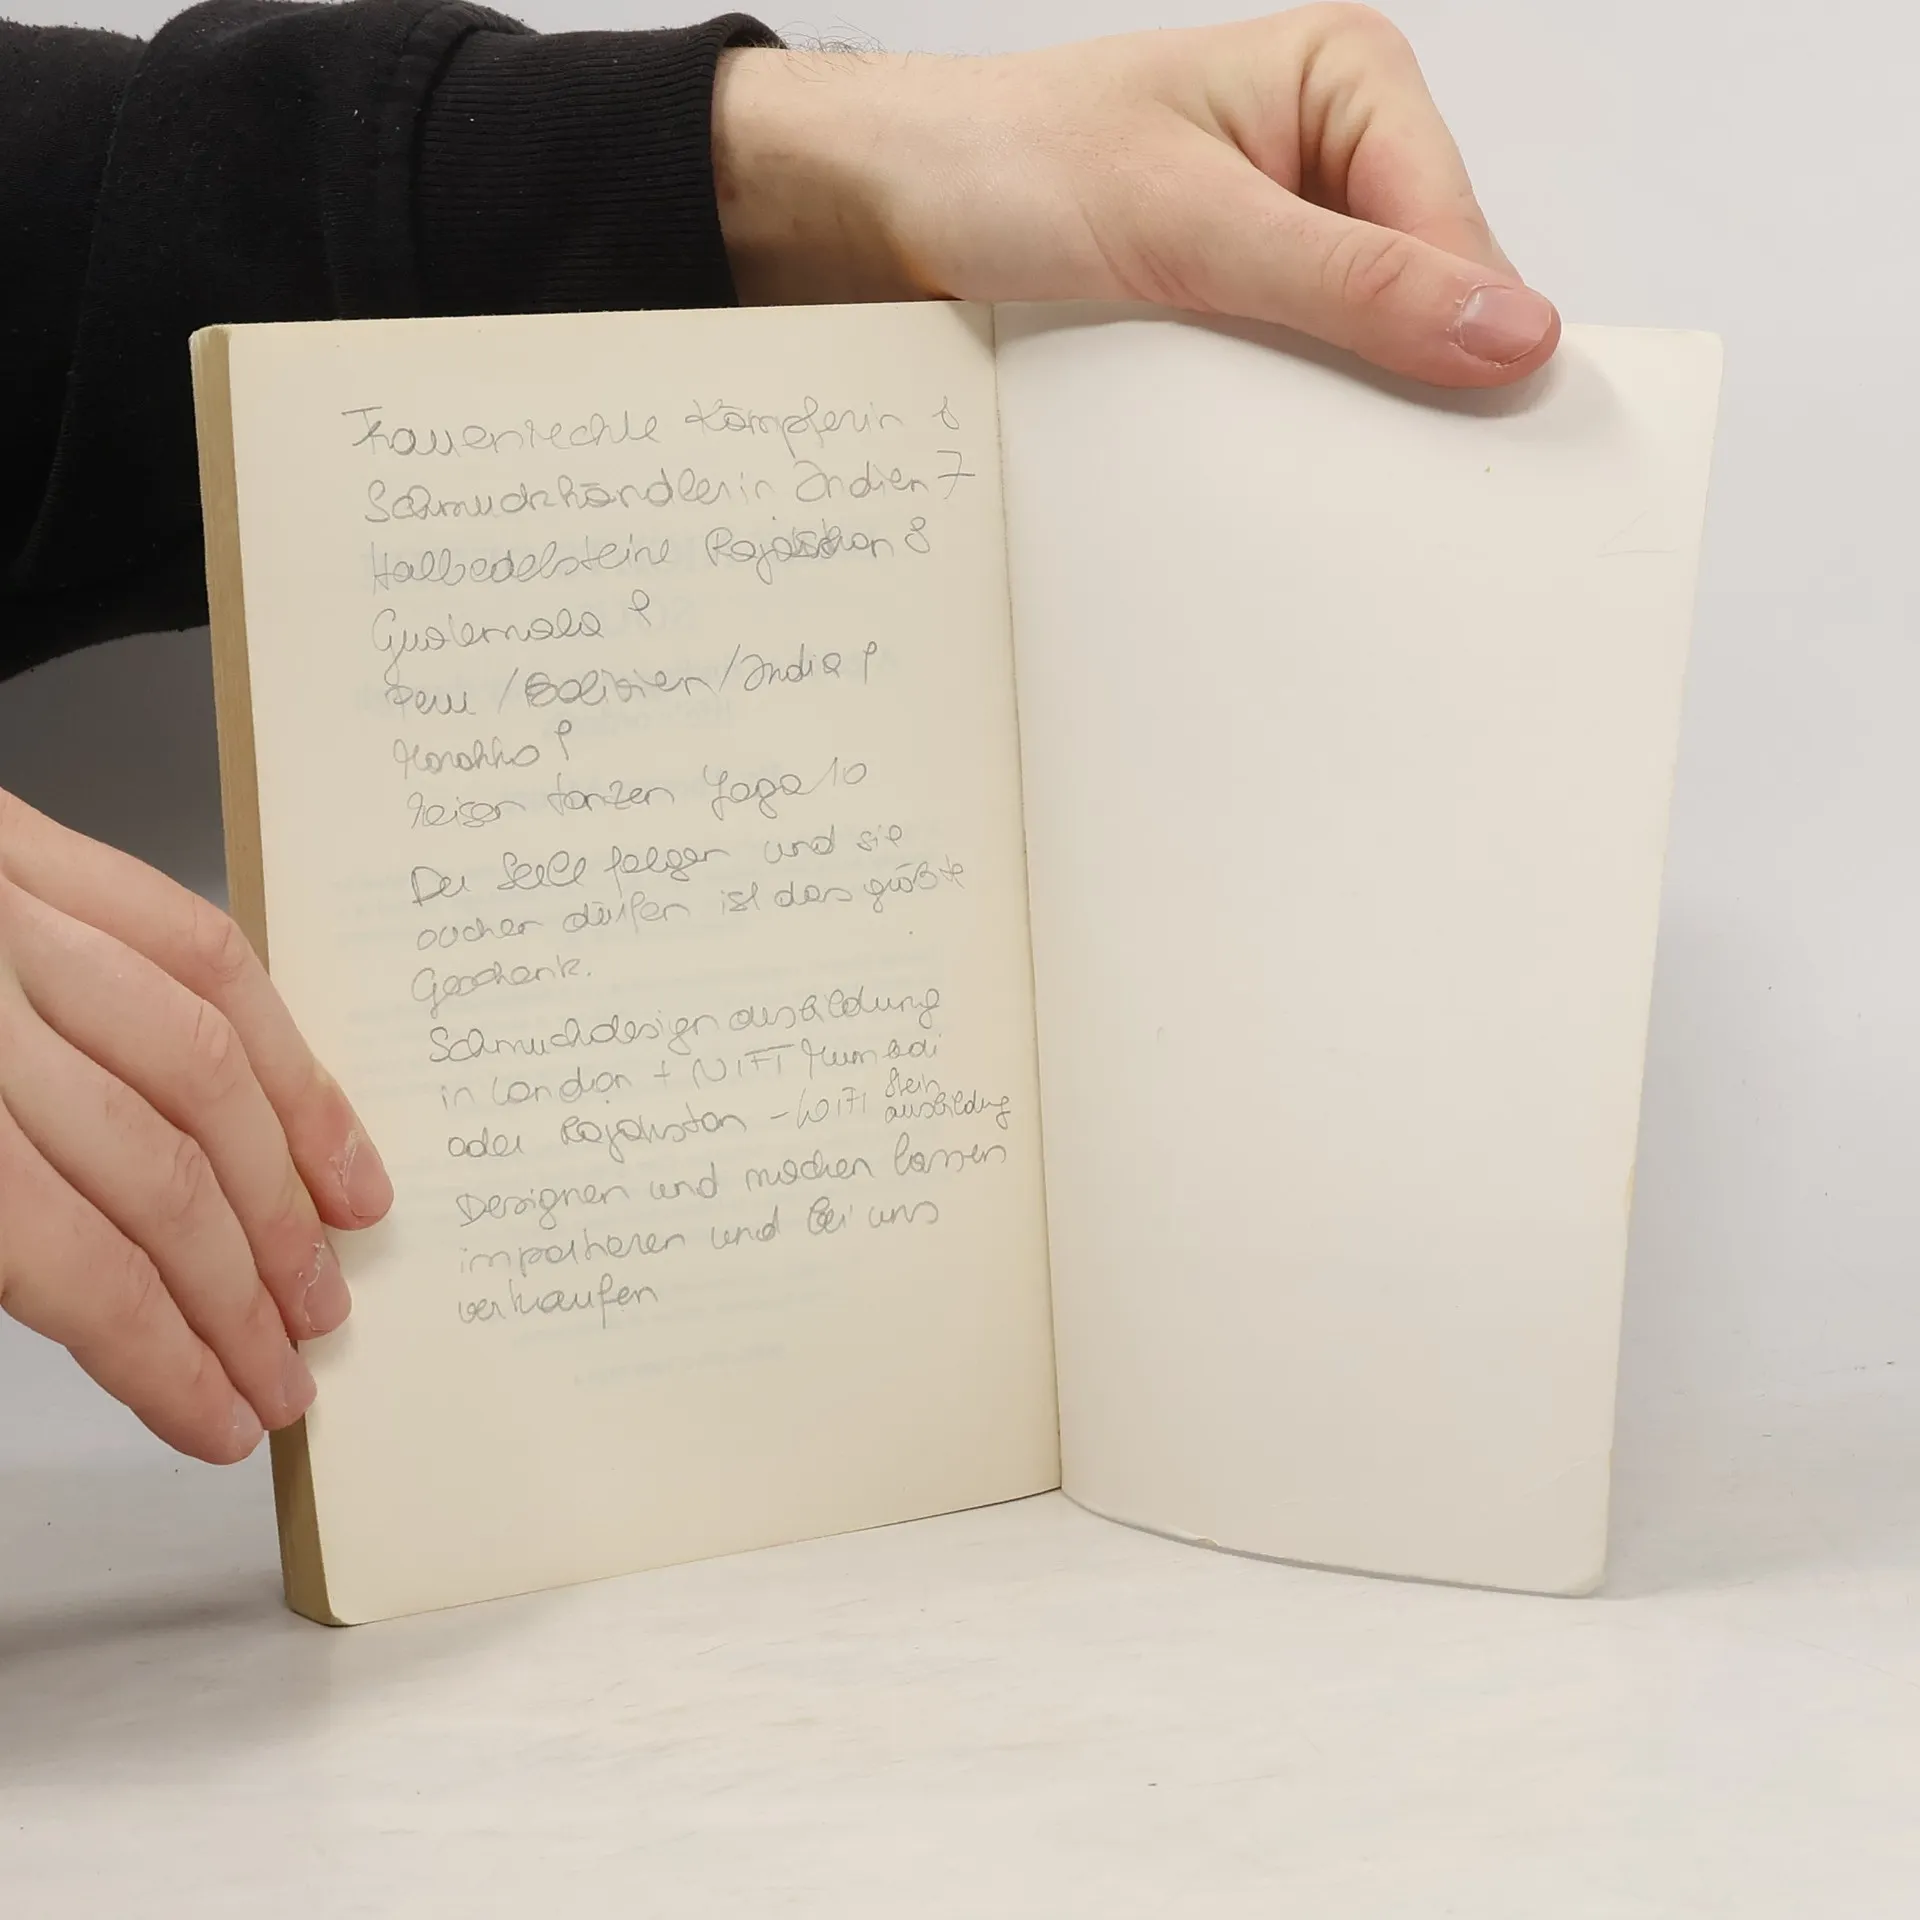 Frauenrechte Kämpferin 8
Schmuckhändlerin Indien 7
Halbedelsteine Rajasthan 8
Guatemala 9
Peru / Bolivien / India 9
Marokko 9
Reisen tanzen Yoga 10
Der Seele folgen und sie
suchen dürfen ist das größte
Geschenk.
Schmuckdesign ausbildung
in London + NIFT Mumbai
oder Rajahstan - WIFI Stein
ausbildung
Designen und machen lassen
importieren und bei uns
verkaufen